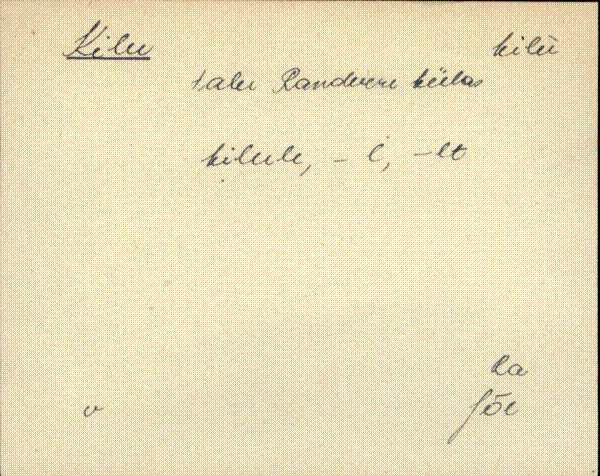 Kilu kilu̬
talu Randvere külas
kilule, -l, -lt
Ka
Jõe
v